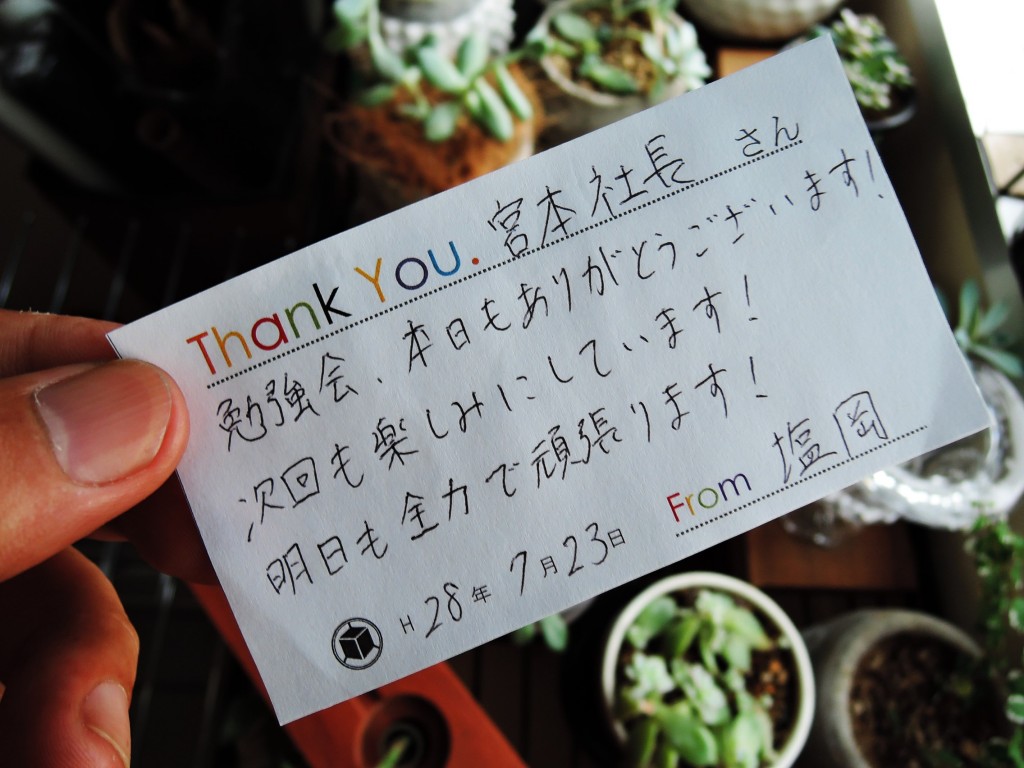 Thank You. 宮本社長 さん
勉強会、本日もありがとうございます!
次回も楽しみにしています!
明日も全力で頑張ります!
From 塩岡
H 28年 7月23日